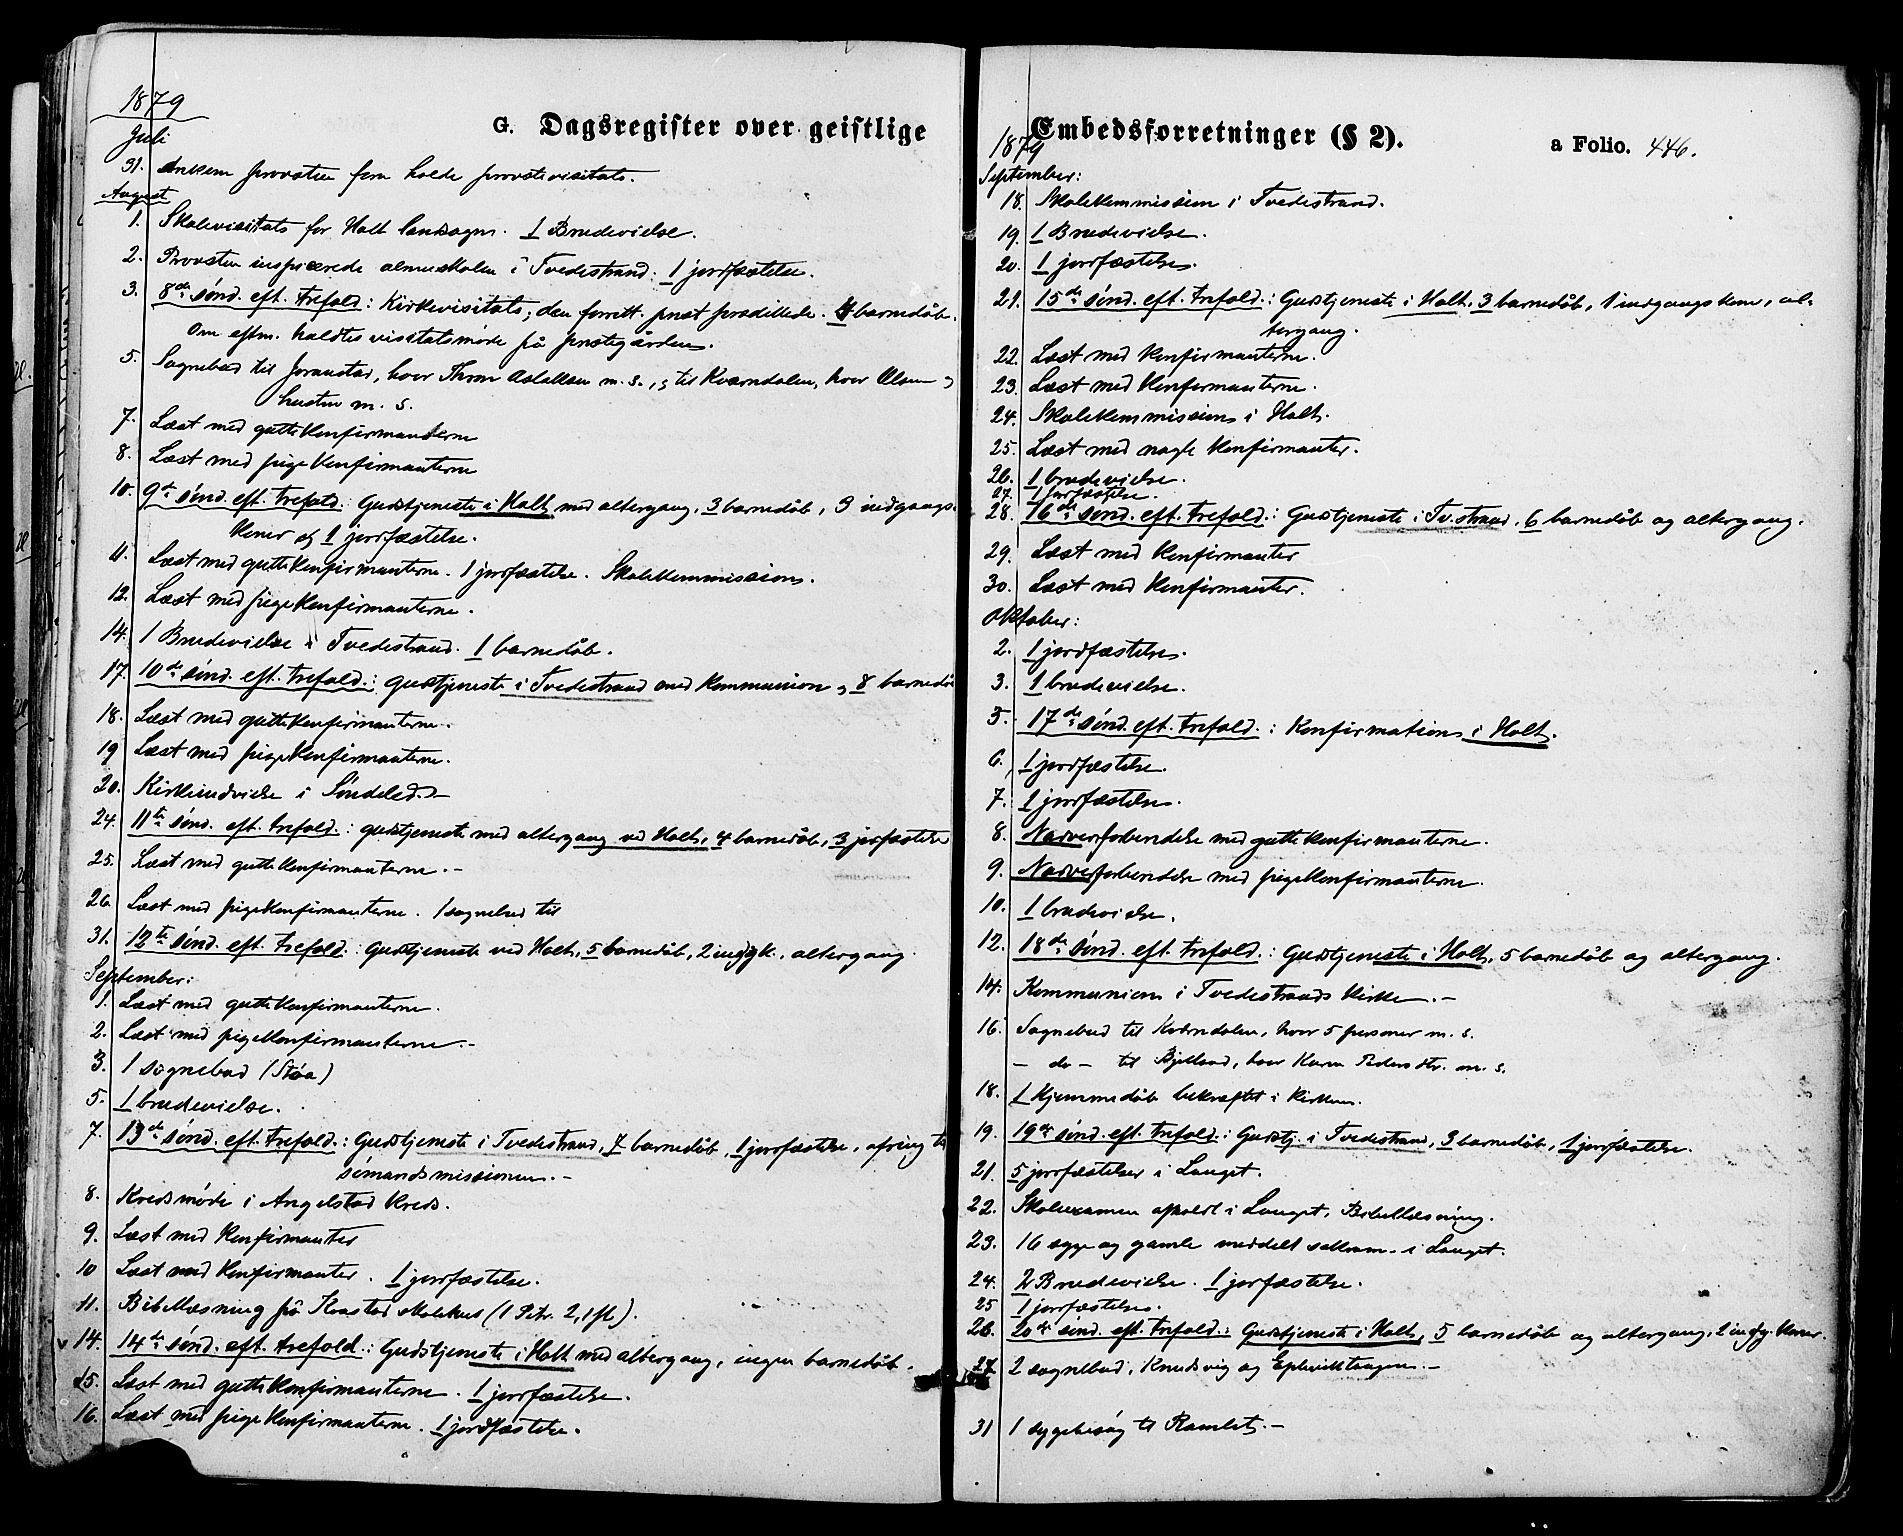 1879
G. Dagsregister over geistlige
Juli
31. Ankom provsten for at holde provstevisitats.
August
1. Skolevisitats for Holt landsogn. 1 Brudevielse.
2. Provsten inspicerede almueskolen i Tvedestrand. 1 jordfæstelse.
3. 8de sønd. eft. trefold.: Kirkevisitats; den forrett. præst prædikede. 4 barnedåb.
Om eftm. holdtes visitatsmøde på præstegården.
5. Sognebud til Joranstad, hvor Thron Aslaksen m. s., og til Kværndalen, hvor Olsen og
hustru m. s.
7. Læst med guttekonfirmanterne
8. Læst med pigekonfirmanterne
10. 9de sønd. eft. trefold.: Gudstjeneste i Holt med altergang, 3 barnedåb, 3 indgangs-
koner og 1 jordfæstelse.
11. Læst med guttekonfirmanterne. 1 jordfæstelse. Skolekommission.
12. Læst med pigekonfirmanterne.
14. 1 Brudevielse i Tvedestrand. 1 barnedåb.
17. 10de sønd. eft. trefold.: gudstjeneste i Tvedestrand med kommunion og 8 barnedåb
18. Læst med guttekonfirmanterne.
19 Læst med pigekonfirmanterne.
20. Kirkeindvielse i Søndeled.-
24. 11te sønd. eft. trefold.: gudstjeneste med altergang ved Holt, 4 barnedåb, 3 jordfæstelse
25. Læst med guttekonfirmanterne.-
26. Læst med pigekonfirmanterne. 1 sognebud til
31. 12te sønd. eft. trefold.: Gudstjeneste ved Holt, 5 barnedåb, 2 indgk., altergang.
September:
1. Læst med guttekonfirmanterne.
2. Læst med pigekonfirmanterne.-
3. 1 sognebud (Støa)
5. 1 brudevielse.
7. 13de sønd. eft. trefold.: Gudstjeneste i Tvedestrand, 7 barnedåb, 1 jordfæstelse, ofring til
sømandsmissionen.-
8. Kredsmøde i Angelstad kreds.
9. Læst med konfirmanter
10 Læst med konfirmanter. 1 jordfæstelse.
11. Bibellæsning på Kvastad skolehus (1 Petr. 2, 1 fl).
14. 14de sønd. eft. trefold.: Gudstjeneste i Holt med altergang, ingen barnedåb.
15. Læst med guttekonfirmanterne. 1 jordfæstelse.
16. Læst med pigekonfirmanterne. 1 jordfæstelse.
Embedsforretninger (§ 2).
a Folio. 446.
1879
September:
18. Skolekommission i Tvedestrand.
19. 1 Brudevielse.
20. 1 jordfæstelse.
21. 15de sønd. eft. trefold.: Gudstjeneste i Holt, 3 barnedåb, 1 indgangskone, al-
tergang.
22. Læst med konfirmanterne.
23. Læst med konfirmanterne.
24. Skolekommission i Holt.
25. Læst med nogle konfirmanter.
26. 1 brudevielse.
27. 1 jordfæstelse.
28. 16de sønd. eft. trefold.: Gudstjeneste i Tv.strand, 6 barnedåb og altergang.
29. Læst med konfirmanter
30. Læst med konfirmanter.
Oktober:
2. 1 jordfæstelse.
3. 1 brudevielse.
5. 17de sønd. eft. trefold.: Konfirmation i Holt.
6. 1 jordfæstelse.
7. 1 jordfæstelse.
8. Nadverforberedelse med guttekonfirmanterne.
9. Nadverforberedelse med pigekonfirmanterne.
10. 1 brudevielse.
12. 18de sønd. eft. trefold.: Gudstjeneste i Holt, 5 barnedåb og altergang.
14. Kommunion i Tvedestrands kirke.-
16. Sognebud til Kværndalen, hvor 5 personer m. s.
- do - til Bjelland, hvor Karen Pedersdtr. m. s.
18. 1 hjemmedåb bekræftet i kirken.
19. 19de sønd. eft. trefold.: Gudstj. i Tvedestrand, 3 barnedåb, 1 jordfæstelse.
21. 5 jordfæstelser i Lauget.
22. Skoleexamen afholdt i Lauget, Bibellæsning.
23. 16 syge og gamle meddelt sakram. i Lauget.
24. 2 Brudevielse. 1 jordfæstelse.
25 1 jordfæstelse.
26. 20de sønd. eft. trefold.: Gudstjeneste i Holt, 5 barnedåb og altergang, 2 indg. koner.
27. 2 sognebud, Knudsvig og Eplevikttangen.-
31 1 sygebesøg til Ramlet.-